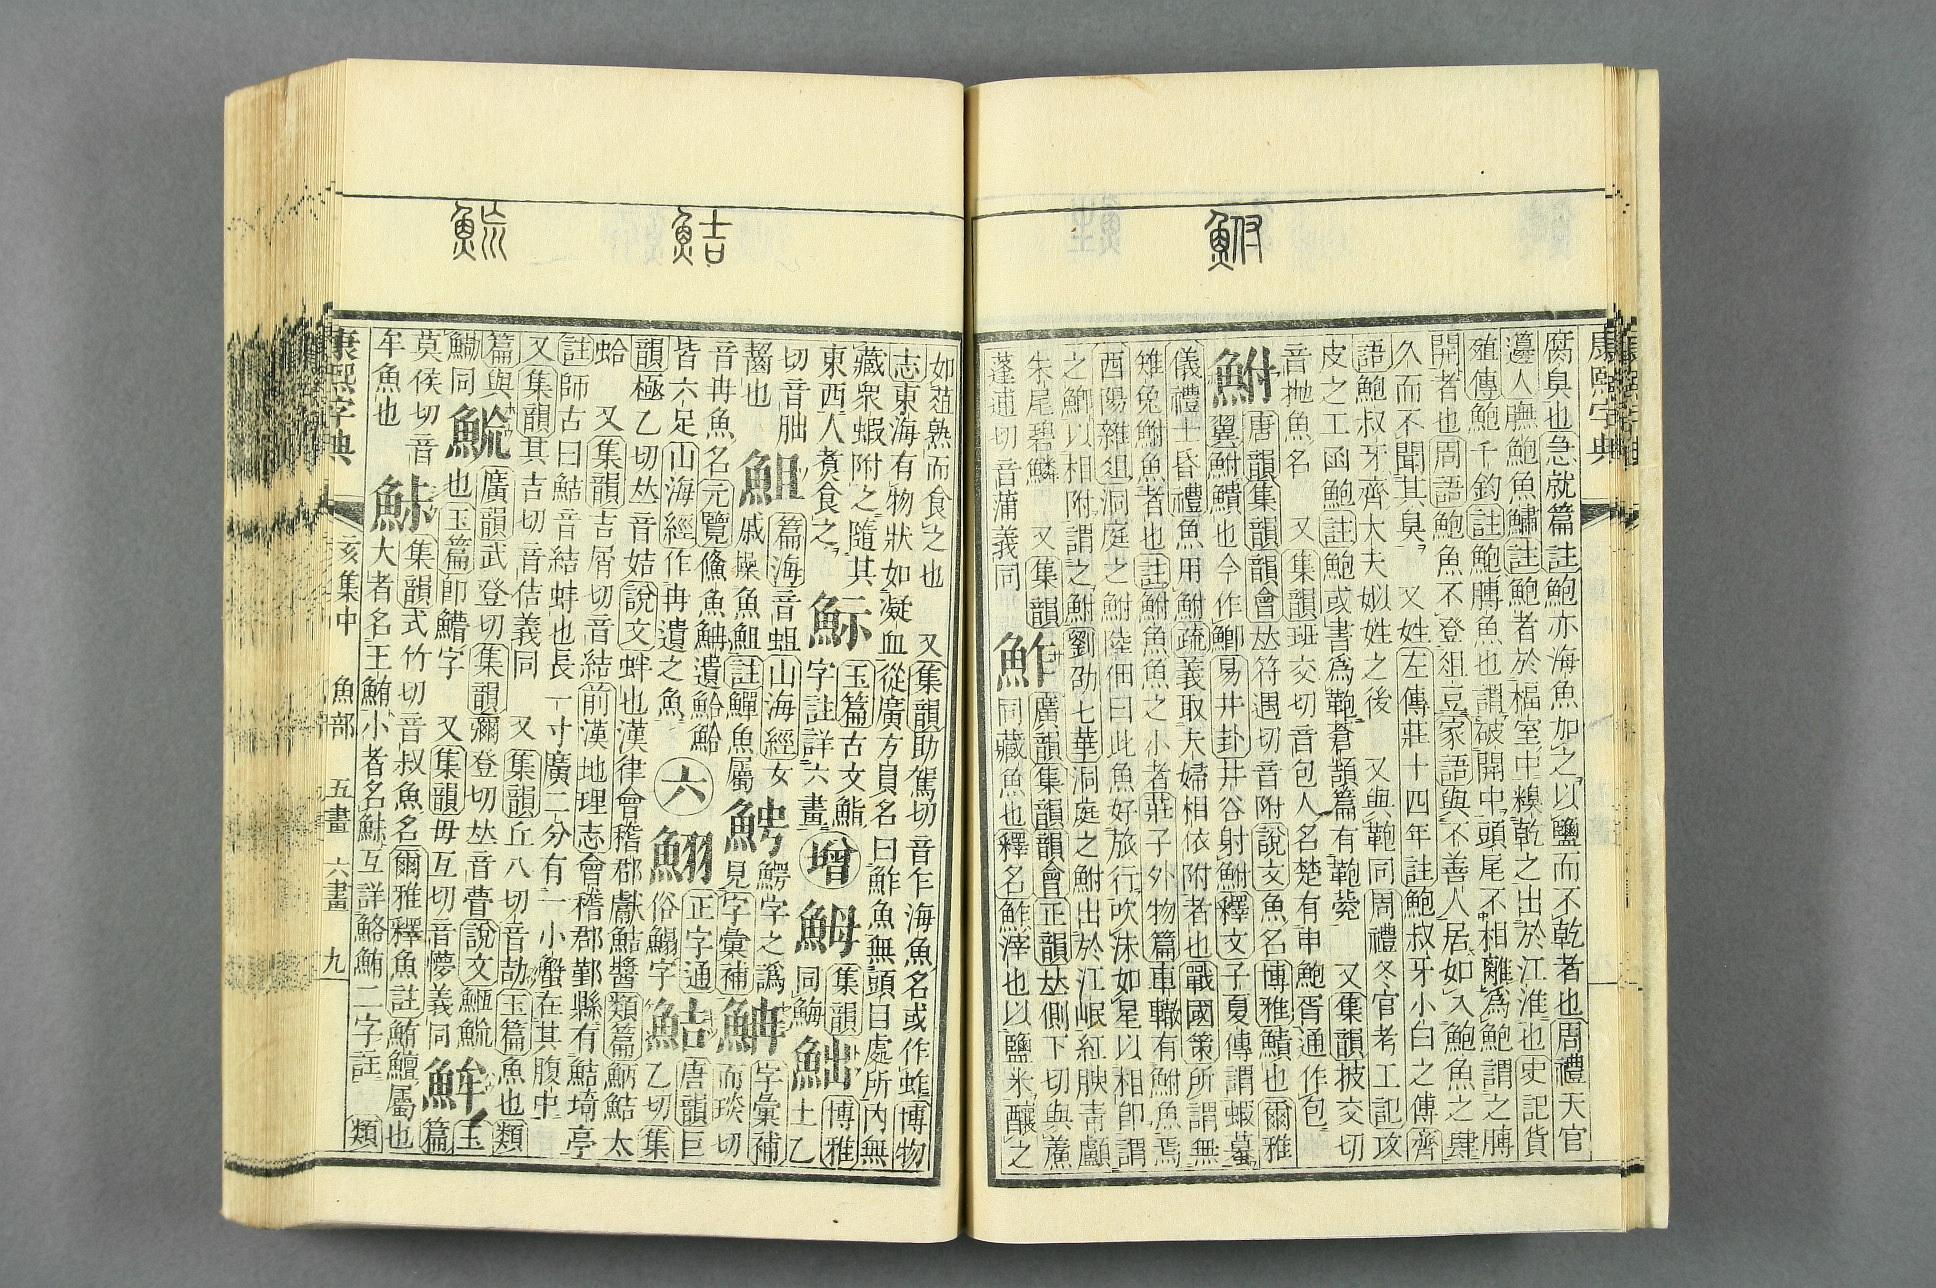 鮒
腐臭也急就篇註鮑亦海魚加之以鹽而不乾者也周禮天官
籩人膴鮑魚鱐註鮑者於楅室中糗乾之出於江淮也史記貨
殖傳鮑千鈞註鮑膊魚也謂破開中頭尾不相離爲鮑謂之膊
開者也周語鮑魚不登俎豆家語與不善人居如入鮑魚之肆
久而不聞其臭 又姓左傳莊十四年註鮑叔牙小白之傅齊
語鮑叔牙齊大夫姒姓之後 又與鞄同周禮冬官考工記攻
皮之工函鮑註鮑或書爲鞄蒼頡篇有鞄㼱 又集韻披交切
音抛魚名 又集韻班交切音包人名楚有申鮑胥通作包
鮒唐韻集韻韻會𠀤符遇切音附說文魚名博雅鰿也爾雅
翼鮒鰿也今作鯽易井卦井谷射鮒釋文子夏傳謂蝦蟇
儀禮士昏禮魚用鮒疏義取夫婦相依附者也戰國策所謂無
雉兔鮒魚者也註鮒魚魚之小者莊子外物篇車轍有鮒魚焉
酉陽雜俎洞庭之鮒陸佃曰此魚好旅行吹沫如星以相卽謂
之鯽以相附謂之鮒劉劭七華洞庭之鮒出於江岷紅腴靑顱
朱尾碧鱗 又集韻蓬逋切音蒲義同
鮓廣韻集韻韻會正韻𠀤側下切與鮺同藏魚也釋名鮓滓也以鹽米釀之
康熙字典
鮚
鯍
如葅熟而食之也 又集韻助駕切音乍海魚名或作䖳博物
志東海有物狀如凝血從廣方員名曰鮓魚無頭目處所內無
藏衆蝦附之隨其東西人煑食之
䰽玉篇古文鮨字註詳六畫
增
䱕集韻同鰵
䱂博雅土乙切音胐
䱉篇海音蛆山海經女䱉也
戚操魚䱉註鱓魚屬
䱜鰐字之譌見字彙補
䱞字彙補而琰切音冉魚名元覽儵魚䱞遺鮯鮯皆六足山海經作冉遺之魚
六
𩶤正字通俗鰨字
鮚唐韻巨乙切集韻極乙切𠀤音姞說文蚌也漢律會稽郡獻鮚醬類篇魶鮚大蛤 又集韻吉屑切音結前漢地理志會稽郡鄞縣有鮚埼亭
註師古曰鮚音結蚌也長一寸廣二分有一小蟹在其腹中
又集韻其吉切音佶義同 又集韻丘八切音劼玉篇魚也類篇與鰤同
䱎廣韻武登切集韻彌登切𠀤音瞢說文䱭䱎也玉篇卽鱛字 又集韻毋亙切音懜義同
䱕玉篇莫侯切音牟魚也
鮛集韻式竹切音叔魚名爾雅釋魚註鮪鱣屬也大者名王鮪小者名鮛互詳鮥鮪二字註 類
康熙字典 亥集中 魚部 五畫 六畫 九